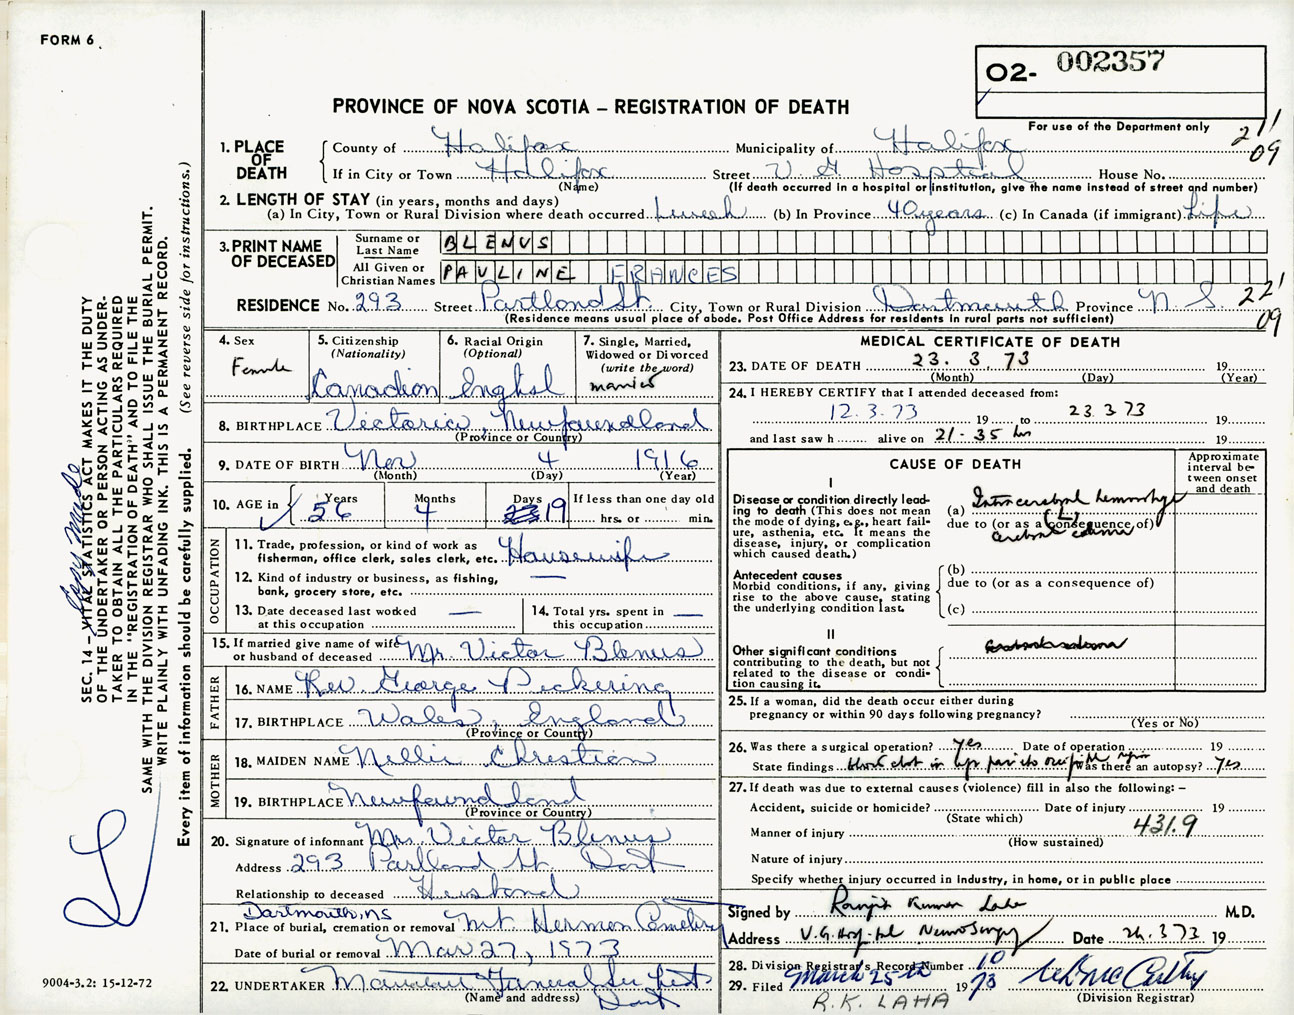 FORM 6
O2- 002357
PROVINCE OF NOVA SCOTIA – REGISTRATION OF DEATH
For use of the Department only
211
09
1. PLACE OF DEATH
County of Halifax Municipality of Halifax
If in City or Town Halifax Street V. G. Hospital House No.
(Name) (If death occurred in a hospital or institution, give the name instead of street and number)
2. LENGTH OF STAY (in years, months and days)
(a) In City, Town or Rural Division where death occurred 1 week (b) In Province 40 years (c) In Canada (if immigrant) Life
3. PRINT NAME OF DECEASED
Surname or Last Name BLENUS
All Given or Christian Names PAULINE FRANCES
RESIDENCE No. 293 Street Portland St. City, Town or Rural Division Dartmouth Province N. S.
221
09
(Residence means usual place of abode. Post Office Address for residents in rural parts not sufficient)
4. Sex Female
5. Citizenship (Nationality) Canadian
6. Racial Origin (Optional) English
7. Single, Married, Widowed or Divorced (write the word) married
8. BIRTHPLACE Victoria, Newfoundland
(Province or Country)
9. DATE OF BIRTH Nov 4 1916
(Month) (Day) (Year)
10. AGE in Years 56 Months 4 Days 19 If less than one day old
hrs. or min.
OCCUPATION
11. Trade, profession, or kind of work as fisherman, office clerk, sales clerk, etc. Housewife
12. Kind of industry or business, as fishing, bank, grocery store, etc. —
13. Date deceased last worked at this occupation —
14. Total yrs. spent in this occupation —
15. If married give name of wife or husband of deceased Mr. Victor Blenus
FATHER
16. NAME Rev. George Pickering
17. BIRTHPLACE Wales, England
(Province or Country)
MOTHER
18. MAIDEN NAME Nellie Christian
19. BIRTHPLACE Newfoundland
(Province or Country)
20. Signature of informant Mrs. Victor Blenus
Address 293 Portland St. Dart
Relationship to deceased Husband
Dartmouth, NS
21. Place of burial, cremation or removal Mt. Hermon Cemetery
Date of burial or removal Mar 27, 1973
22. UNDERTAKER Funeral Ser Ltd
(Name and address) Dart
MEDICAL CERTIFICATE OF DEATH
23. DATE OF DEATH 23. 3. 73 19
(Month) (Day) (Year)
24. I HEREBY CERTIFY that I attended deceased from:
12.3.73 19 to 23 3 73 19
and last saw h alive on 21-35 hrs 19
CAUSE OF DEATH
Approximate interval between onset and death
I
Disease or condition directly leading to death (This does not mean the mode of dying, e.g., heart failure, asthenia, etc. It means the disease, injury, or complication which caused death.)
(a) Intracerebral hemorrhage (L)
due to (or as a consequence of)
Cerebral edema
Antecedent causes
Morbid conditions, if any, giving rise to the above cause, stating the underlying condition last.
(b)
due to (or as a consequence of)
(c)
II
Other significant conditions contributing to the death, but not related to the disease or condition causing it.
25. If a woman, did the death occur either during pregnancy or within 90 days following pregnancy?
(Yes or No)
26. Was there a surgical operation? yes Date of operation 19
State findings blood clot in left parieto occipital region Was there an autopsy? yes
27. If death was due to external causes (violence) fill in also the following: –
Accident, suicide or homicide? Date of injury 19
(State which)
Manner of injury 431.9
(How sustained)
Nature of injury
Specify whether injury occurred in Industry, in home, or in public place
Signed by Ranjit Kumar Laha M.D.
Address V.G. Hospital NeuroSurgery Date 24.3 73 19
28. Division Registrar's Record Number 10
29. Filed March 25th 1973
(Division Registrar)
R.K. LAHA
9004-3.2: 15-12-72
SEC. 14 – VITAL STATISTICS ACT MAKES IT THE DUTY
OF THE UNDERTAKER OR PERSON ACTING AS UNDER-
TAKER TO OBTAIN ALL THE PARTICULARS REQUIRED
IN THE "REGISTRATION OF DEATH" AND TO FILE THE
SAME WITH THE DIVISION REGISTRAR WHO SHALL ISSUE THE BURIAL PERMIT.
WRITE PLAINLY WITH UNFADING INK. THIS IS A PERMANENT RECORD.
Every item of information should be carefully supplied. (See reverse side for instructions.)
Copy Made